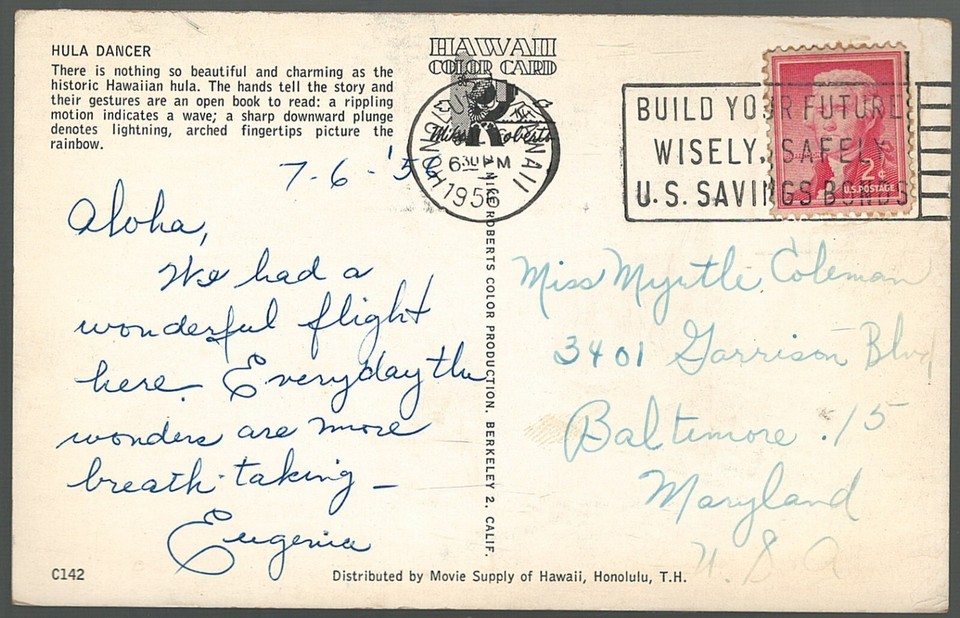 HULA DANCER
There is nothing so beautiful and charming as the
historic Hawaiian hula. The hands tell the story and
their gestures are an open book to read: a rippling
motion indicates a wave; a sharp downward plunge
denotes lightning, arched fingertips picture the
rainbow.
7-6-'56
Aloha,
We had a
wonderful flight
here. Everyday the
wonders are more
breath-taking —
Eugenia
C142
HAWAII
COLOR CARD
Mike Roberts
HONOLULU HAWAII
630 PM
1956
BUILD YOUR FUTURE
WISELY. SAFELY
U.S. SAVINGS BONDS
2¢
U.S. POSTAGE
MIKE ROBERTS COLOR PRODUCTION. BERKELEY 2. CALIF.
Miss Myrtle Coleman
3401 Garrison Blvd
Baltimore 15
Maryland
U.S.A.
Distributed by Movie Supply of Hawaii, Honolulu, T.H.